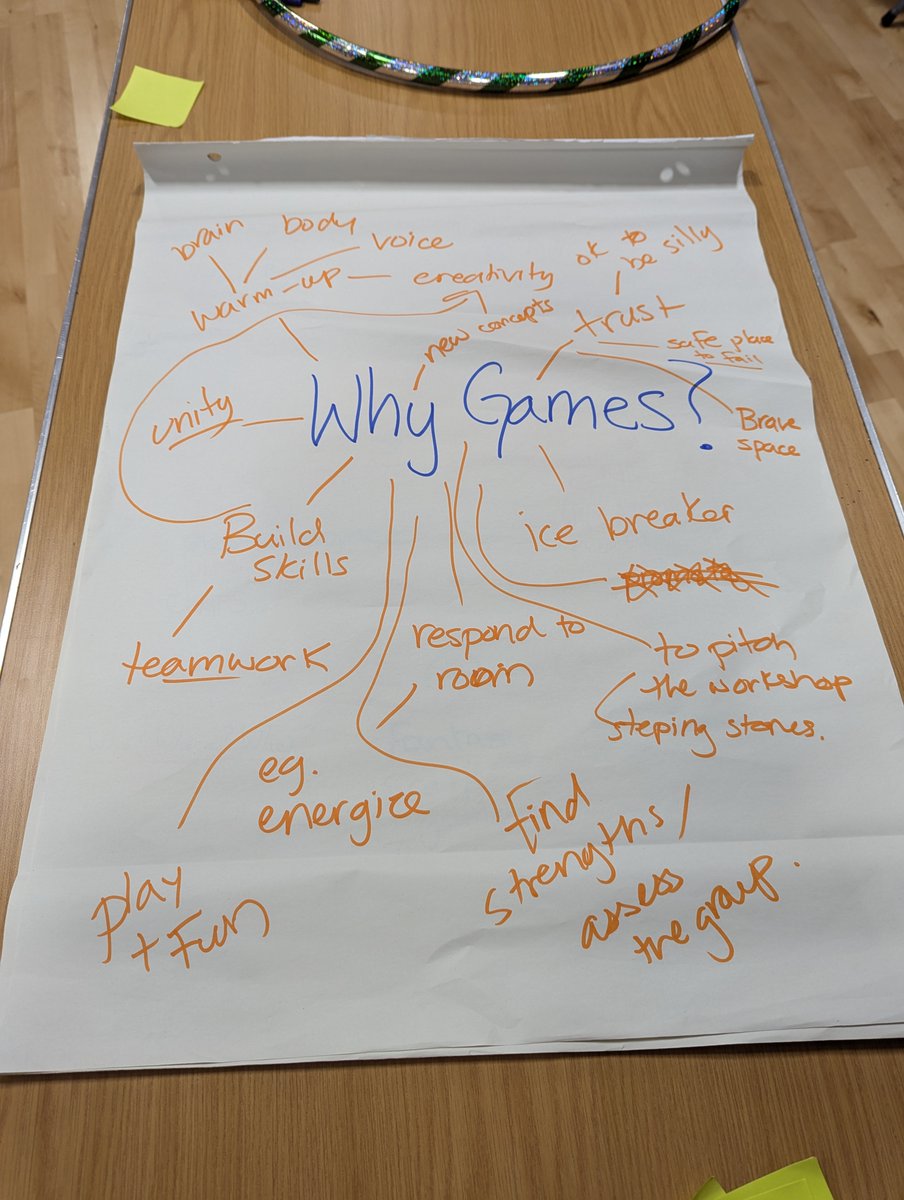 brain
body
voice
warm-up
creativity
new concepts
ok to
be silly
trust
safe place
to fail
Brave
space
Why Games?
unity
Build
skills
teamwork
ice breaker
respond to
room
to pitch
the workshop
steping stones.
eg.
energize
find
strengths/
assess
the group.
play
+ Fun